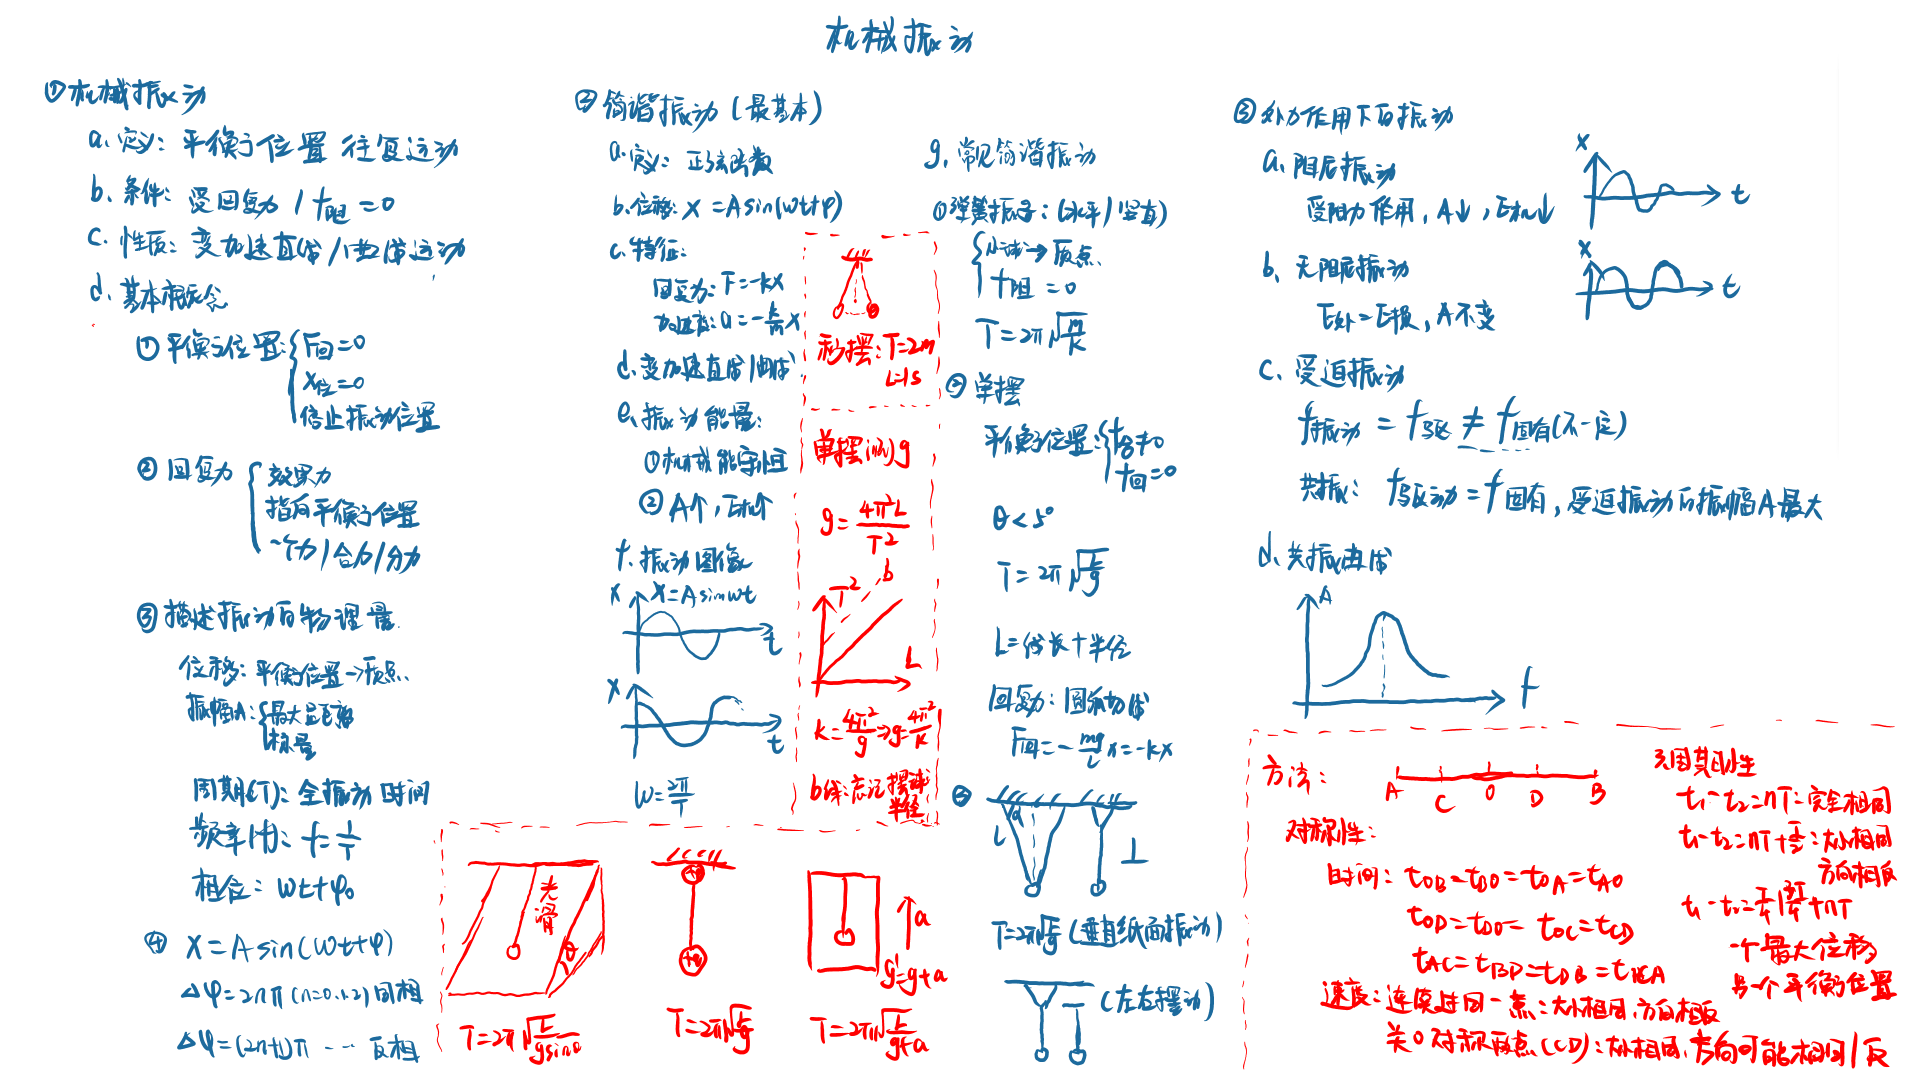 机械振动
①机械振动
a.定义: 平衡位置 往复运动
b.条件: 受回复力 / f阻 = 0
c.性质: 变加速直线/曲线运动
d.基本概念
①平衡位置: F回=0
x位=0
停止振动位置
②回复力
效果力
指向平衡位置
一个力/合力/分力
③描述振动的物理量
位移: 平衡位置→质点
振幅A: 最大距离
标量
周期(T): 全振动时间
频率(f): f=1/T
相位: wt+φ₀
④ x=Asin(wt+φ)
△φ=2nπ (n=0.1.2) 同相
△φ=(2n+1)π ... 反相
②简谐振动 (最基本)
a.定义: 正弦函数
b.位移: x=Asin(wt+φ)
c.特征:
回复力: F=-kx
加速度: a=-k/m x
d.变加速直线/曲线
e.振动能量:
①机械能守恒
②A个, E机个
f.振动图像
x x=Asinwt
t
x
t
w=2π/T
秒摆: T=2m
L=1s
单摆测g
g=4π²L/T²
T² b
L
k=4π²/g ⇒ g=4π²/k
b线: 忘记摆球
半径
g.常见简谐振动
①弹簧振子: (水平/竖直)
小球→质点
f阻=0
T=2π√(m/k)
②单摆
平衡位置: F合≠0
F回=0
θ<5°
T=2π√(L/g)
L=线长+半径
回复力: 圆弧切线
F回=-mg/L x=-kx
③
L α
⊥
T=2π√(L/g) (垂直纸面振动)
(左右摆动)
光滑
θ
T=2π√(L/gsinθ)
+q
+q
T=2π√(L/g)
a
g'=g+a
T=2π√(L/g+a)
③外力作用下的振动
a.阻尼振动
受阻力作用, A↓, E机↓
x
t
b.无阻尼振动
E外=E损, A不变
x
t
c.受迫振动
f振动 = f驱 ≠ f固有(不一定)
共振: f驱动=f固有, 受迫振动的振幅A最大
d.共振曲线
A
f
方法:
A C O D B
对称性:
时间: tOB=tBO=tOA=tAO
tOD=tDO=tOC=tCO
tAC=tBD=tDB=tCA
速度: 连续过同一点: 大小相同, 方向相反
关O对称两点(CD): 大小相同, 方向可能相同/反
周期性
t₁-t₂=nT: 完全相同
t₁-t₂=nT+T/2: 大小相同
方向相反
一个最大位移
另一个平衡位置